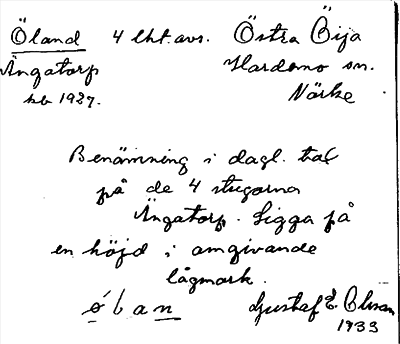 Öland 4 lht. avs. Östra Öija
Ängatorp Hardemo sn.
hb 1927. Närke
Benämning i dagl. tal
på de 4 stugorna
Ängatorp. Ligga på
en höjd i omgivande
lågmark.
ölan Gustaf E Olsson
1933